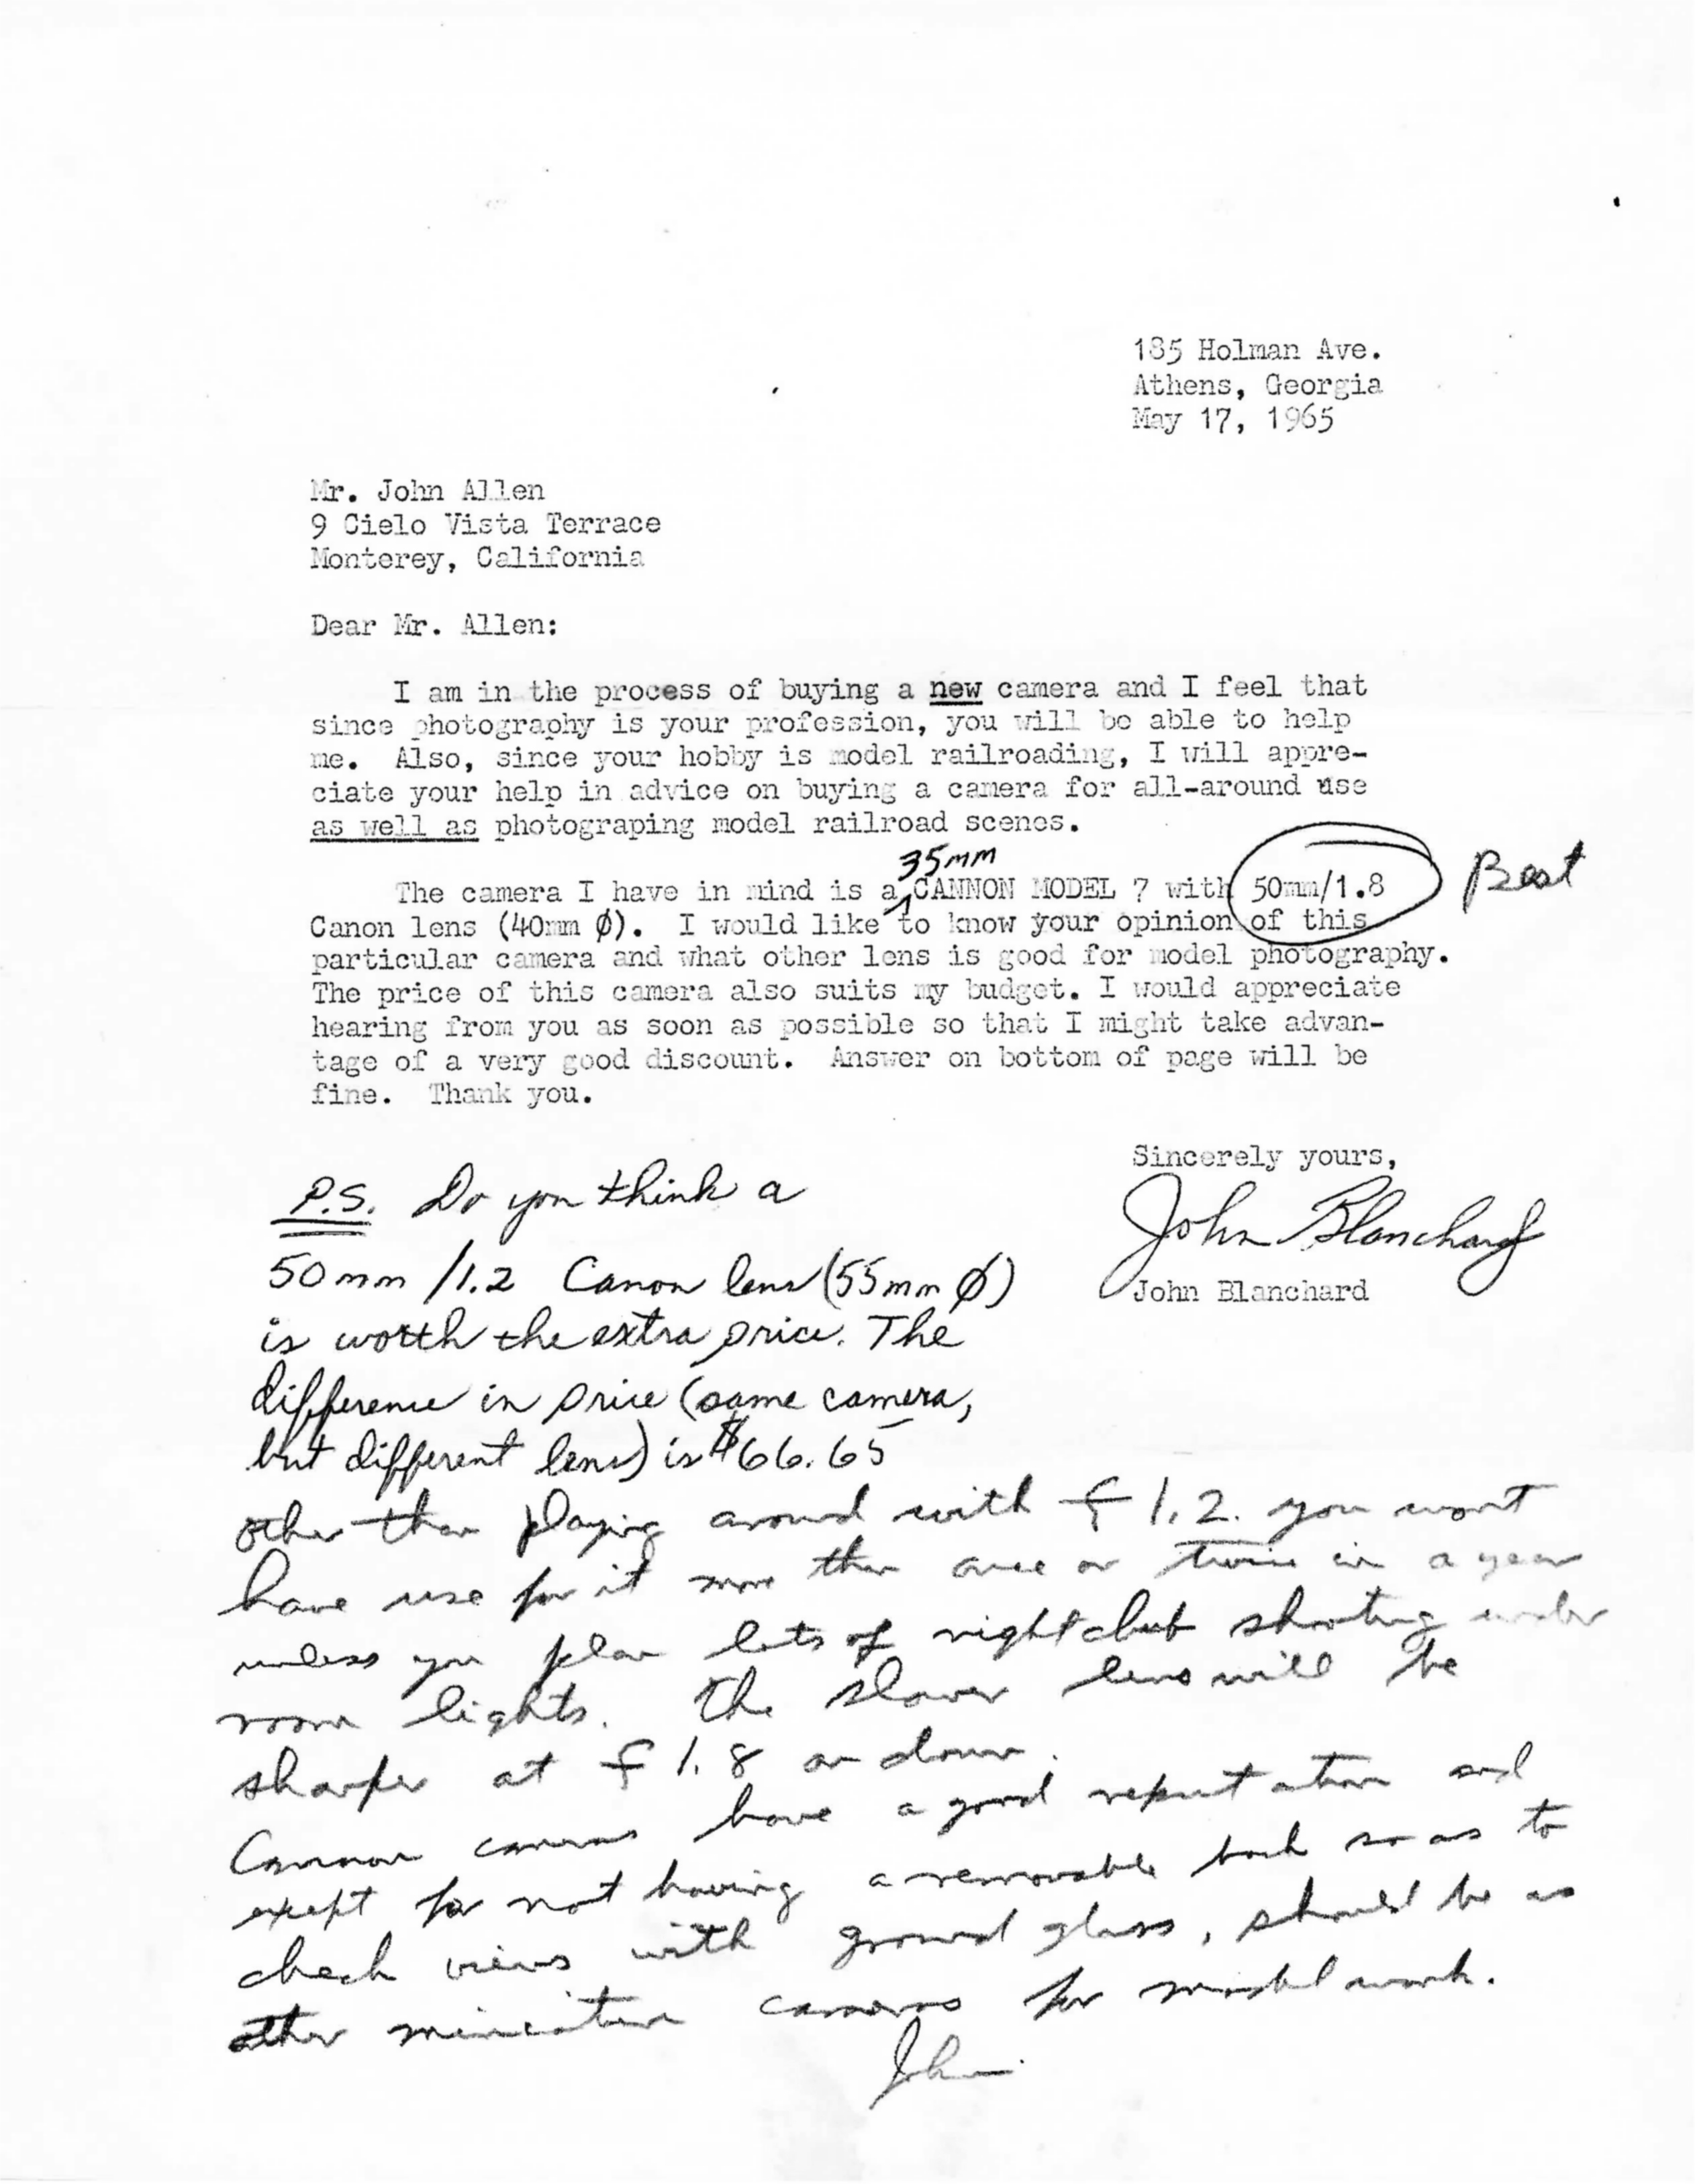 185 Holman Ave.
Athens, Georgia
May 17, 1965
Mr. John Allen
9 Cielo Vista Terrace
Monterey, California
Dear Mr. Allen:
I am in the process of buying a new camera and I feel that
since photography is your profession, you will be able to help
me. Also, since your hobby is model railroading, I will appre-
ciate your help in advice on buying a camera for all-around use
as well as photograping model railroad scenes.
35mm
The camera I have in mind is a CANNON MODEL 7 with 50mm/1.8 Best
Canon lens (40mm ø). I would like to know your opinion of this
particular camera and what other lens is good for model photography.
The price of this camera also suits my budget. I would appreciate
hearing from you as soon as possible so that I might take advan-
tage of a very good discount. Answer on bottom of page will be
fine. Thank you.
Sincerely yours,
John Blanchard
John Blanchard
P.S. Do you think a
50mm /1.2 Canon lens (55mm ø)
is worth the extra price. The
difference in price (same camera,
but different lens) is $66.65
other than playing around with f 1.2. you wont
have use for it more than once or twice in a year
unless you plan lots of nightclub shooting under
room lights. The slower lens will be
sharper at f 1.8 or down.
Cannon cameras have a good reputation and
except for not having a removable back so as to
check views with ground glass, should be as
other miniature cameras for model work.
John